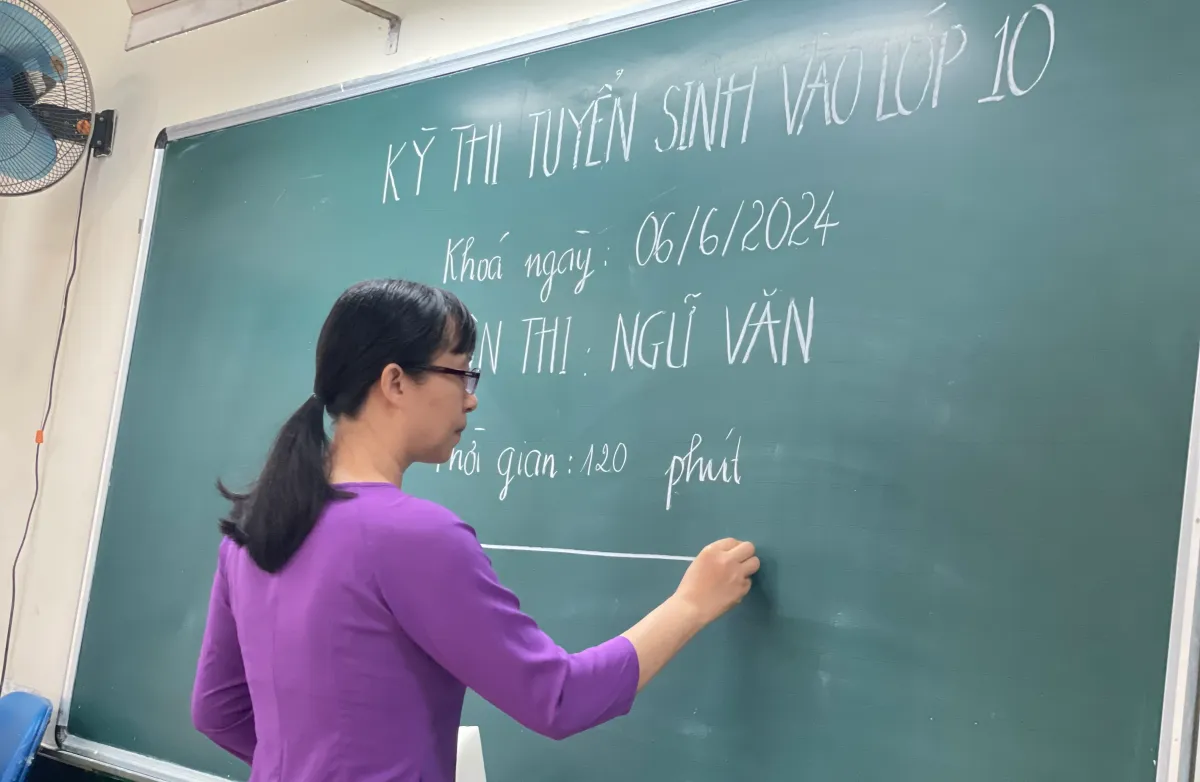 KỲ THI TUYỂN SINH VÀO LỚP 10
Khoá ngày: 06/6/2024
THI : NGỮ VĂN
Thời gian : 120 phút